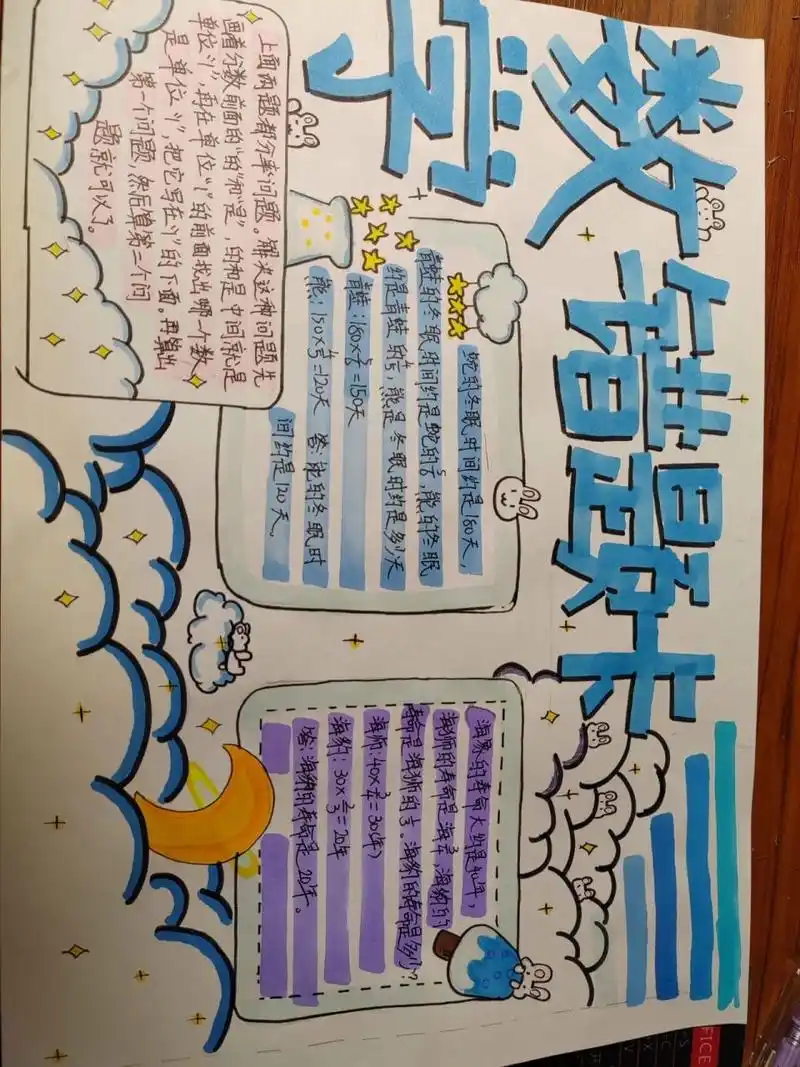 数学
错题卡
蛇的冬眠时间约是180天,
青蛙的冬眠时间约是蛇的5/6,熊的冬眠
约是青蛙的4/5,熊是冬眠时约是多少天
青蛙:180×5/6=150天
熊:150×4/5=120天 答:熊的冬眠时
间约是120天。
海象的寿命大约是40年,
海狮的寿命是海3/4,海豹的
寿命是海狮的2/3。海豹的寿命是多少?
海狮:40×3/4=30(年)
海豹:30×2/3=20年
答:海豹的寿命是20年。
上面两题都分率问题。解决这种问题先
画着分数前面的“的”和“是”,的和是中间就是
单位“1”,再在单位“1”的前面找出哪一个数
是单位“1”,把它写在“1”的下面。再算出
第一个问题,然后算第二个问
题就可以了。
FICE